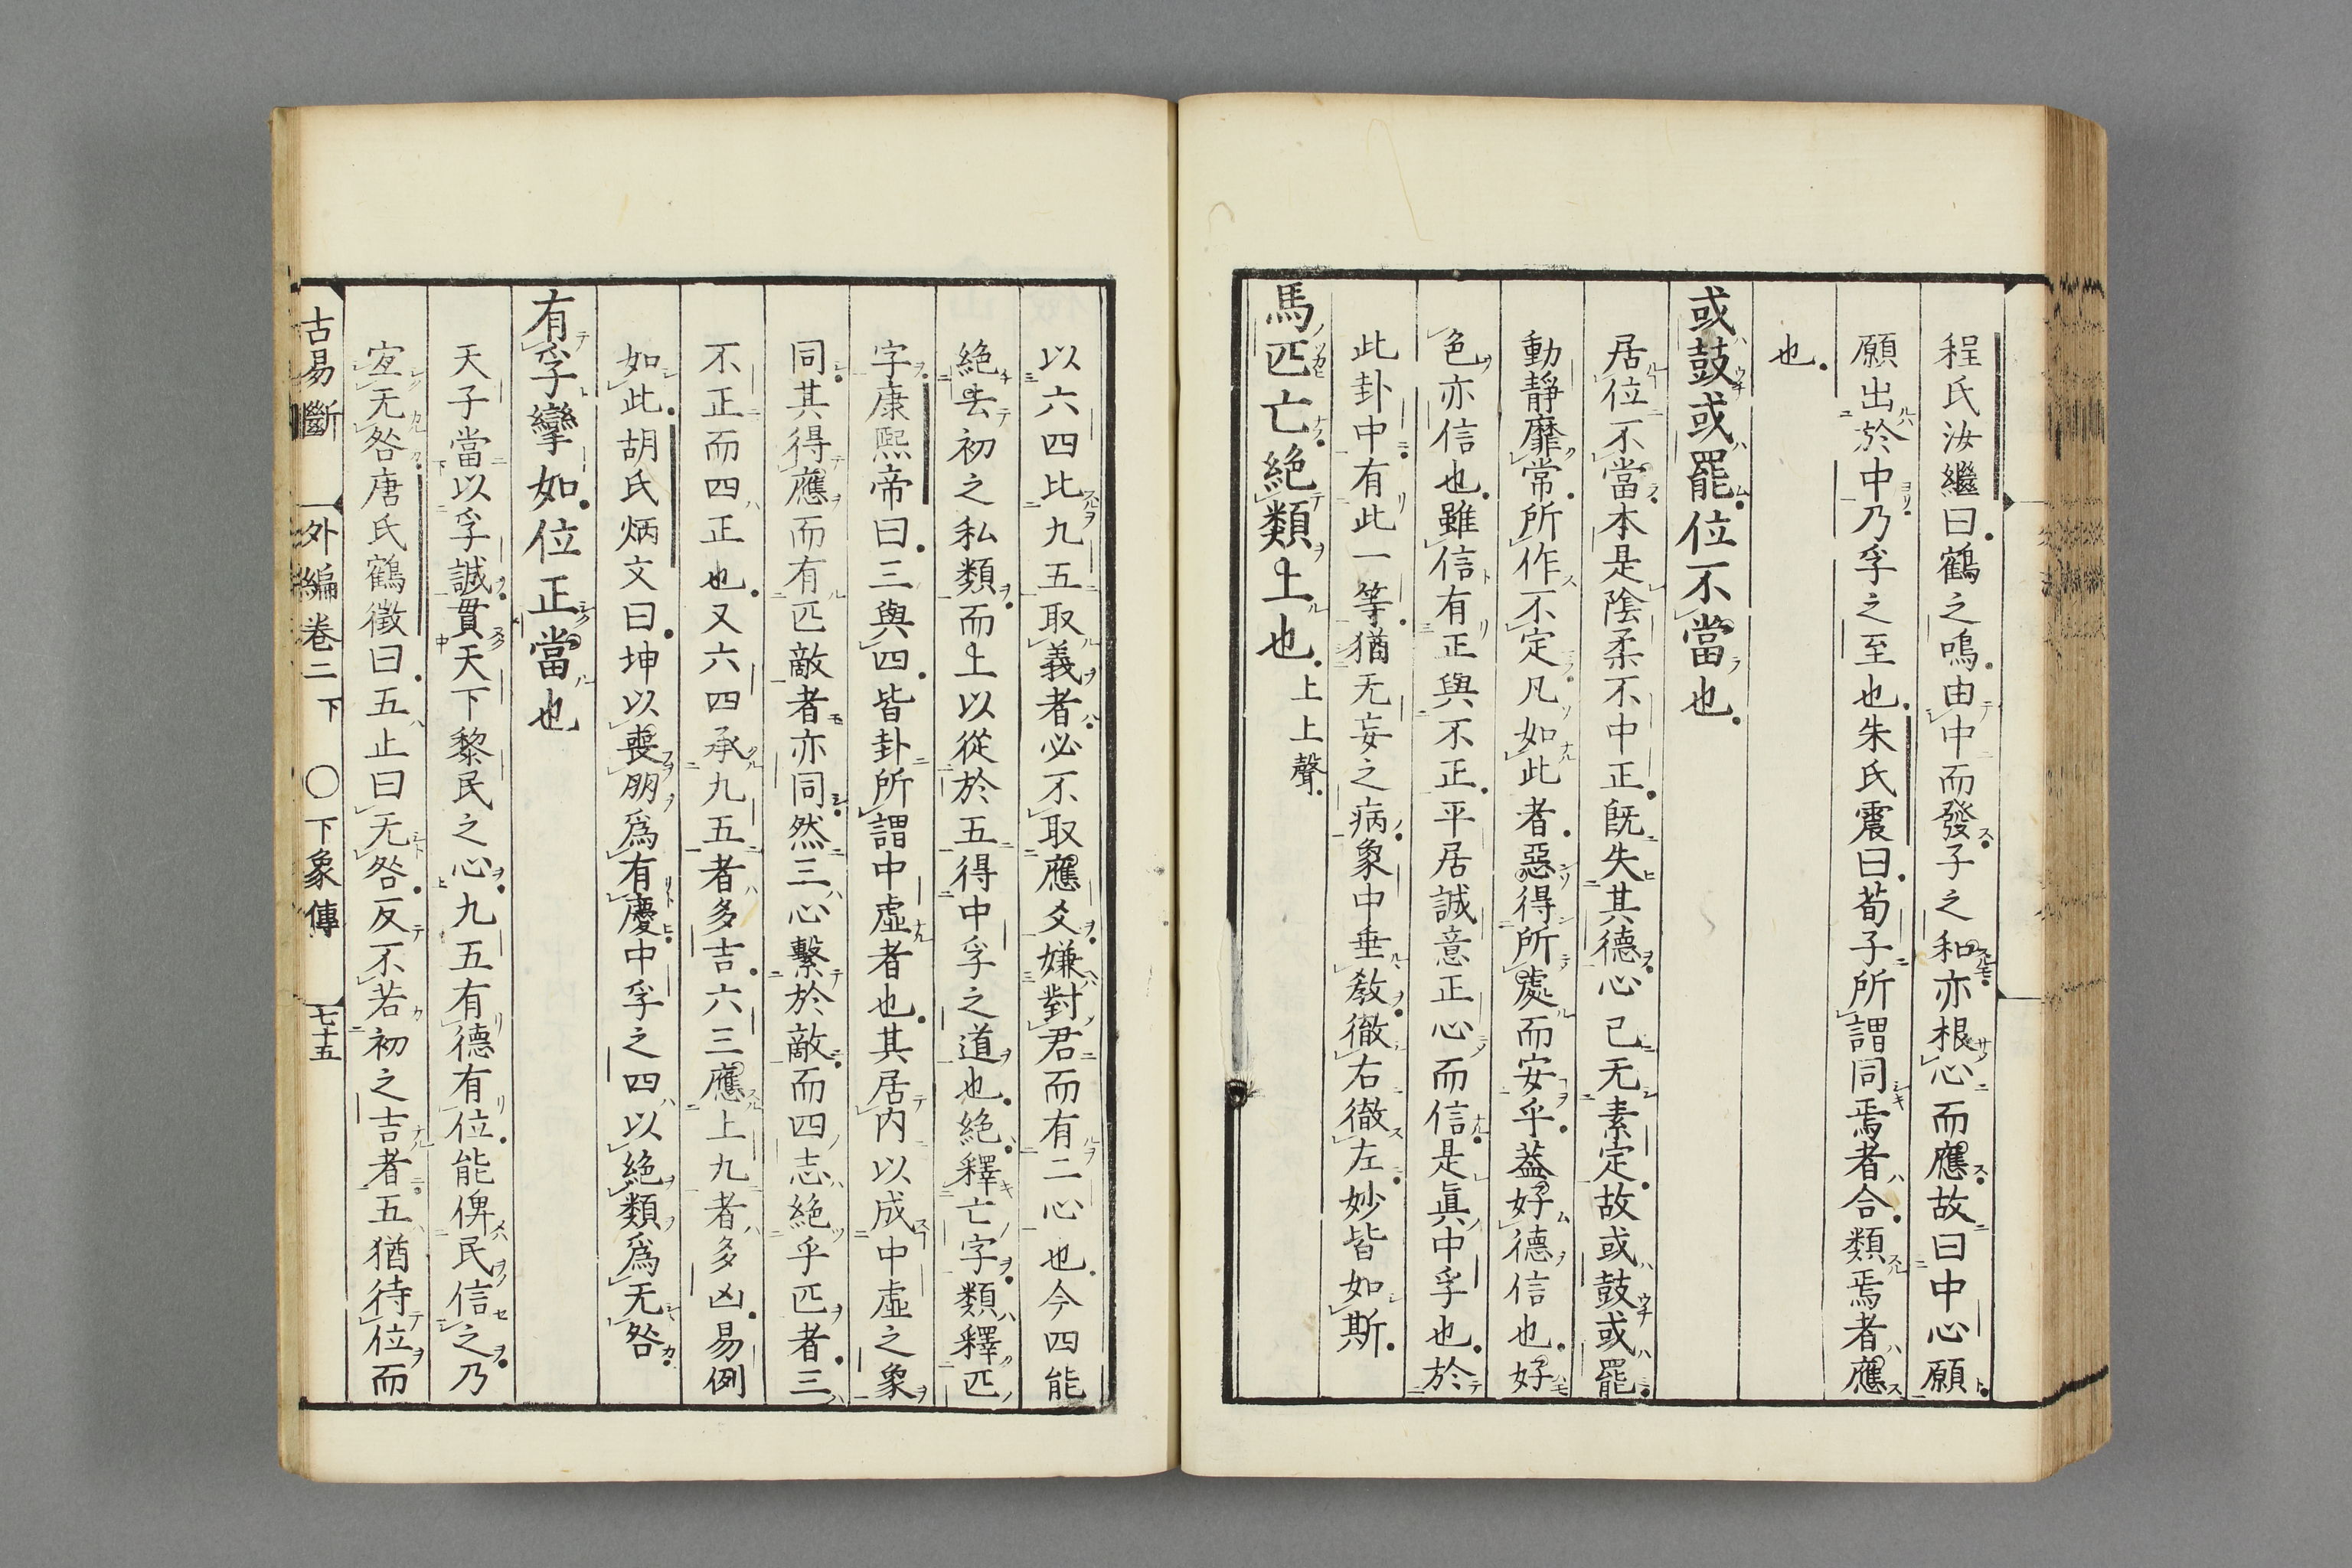 程氏汝繼曰鶴之鳴由中而發子之和亦根心而應故曰中心願
願出於中乃孚之至也朱氏震曰荀子所謂同焉者合類焉者應
也
或鼓或罷位不當也
居位不當本是陰柔不中正既失其德心已无素定故或鼓或罷
動靜靡常所作不定凡如此者惡得所處而安乎葢好德信也好
色亦信也雖信有正與不正平居誠意正心而信是眞中孚也於
此卦中有此一等猶无妄之病象中垂教徹右徹左妙皆如斯
馬匹亡絕類上也上上聲
以六四比九五取義者必不取應爻嫌對君而有二心也今四能
絕去初之私類而上以從於五得中孚之道也絕釋亡字類釋匹
字康熙帝曰三與四皆卦所謂中虛者也其居內以成中虛之象
同其得應而有匹敵者亦同然三心繫於敵而四志絕乎匹者三
不正而四正也又六四承九五者多吉六三應上九者多凶易例
如此胡氏炳文曰坤以喪朋爲有慶中孚之四以絕類爲无咎
有孚攣如位正當也
天子當以孚誠貫天下黎民之心九五有德有位能俾民信之乃
宐无咎唐氏鶴徵曰五止曰无咎反不若初之吉者五猶待位而
古易斷 外編卷二下 〇下象傳 七十五